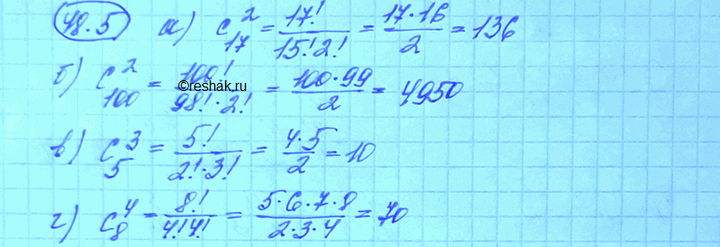 48.5 а) C₁₇² = 17!/(15!2!) = (17·16)/2 = 136
б) C₁₀₀² = 100!/(98!·2!) = (100·99)/2 = 4950
©reshak.ru
в) C₅³ = 5!/(2!·3!) = (4·5)/2 = 10
г) C₈⁴ = 8!/(4!4!) = (5·6·7·8)/(2·3·4) = 70